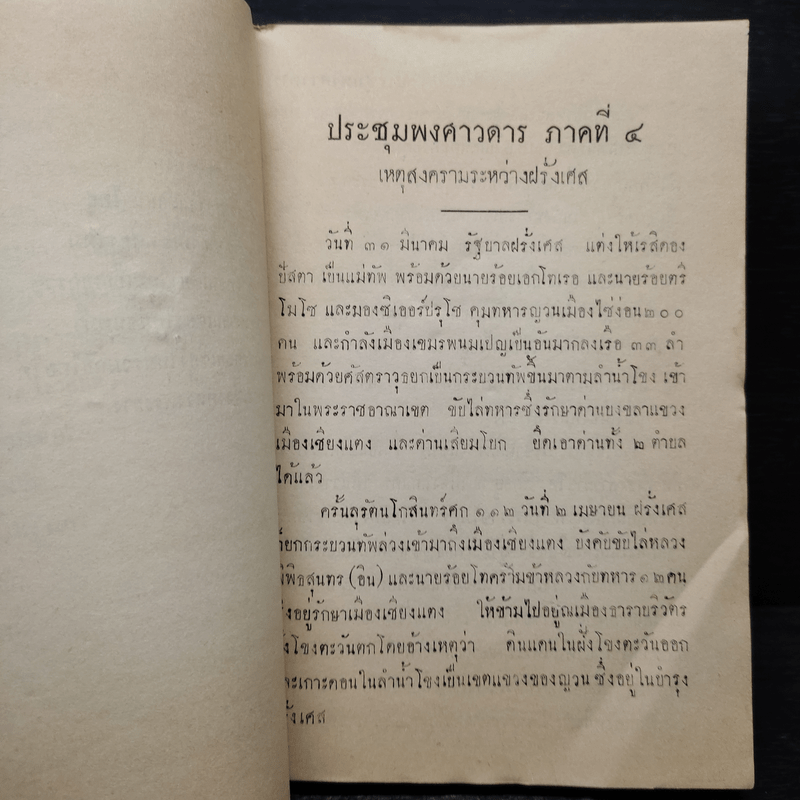 ประชุมพงศาวดาร ภาคที่ ๔
เหตุสงครามระหว่างฝรั่งเศส
วันที่ ๓๑ มีนาคม รัฐบาลฝรั่งเศส แต่งให้เรสิดอง
บัสตา เป็นแม่ทัพ พร้อมด้วยนายร้อยเอกโทเรอ และนายร้อยตรี
โมโซ และมองซิเออร์ปรุโซ คุมทหารญวนเมืองไซ่ง่อน ๒๐๐
คน และกำลังเมืองเขมรพนมเปญเป็นอันมากลงเรือ ๓๓ ลำ
พร้อมด้วยศัสตราวุธยกเป็นกระบวนทัพขึ้นมาตามลำน้ำโขง เข้า
มาในพระราชอาณาเขต ขับไล่ทหารซึ่งรักษาด่านบงขลาแขวง
เมืองเชียงแตง และด่านเสียมโบก ยึดเอาด่านทั้ง ๒ ตำบล
ได้แล้ว
ครั้นลุรัตนโกสินทร์ศก ๑๑๒ วันที่ ๒ เมษายน ฝรั่งเศส
ก็ยกกระบวนทัพล่วงเข้ามาถึงเมืองเชียงแตง บังคับขับไล่หลวง
พิพิธสุนทร (อิน) และนายร้อยโทคร้ามข้าหลวงกับทหาร ๑๒ คน
ซึ่งอยู่รักษาเมืองเชียงแตง ให้ข้ามไปอยู่ณเมืองธาราบริวัตร
ฝั่งโขงตะวันตกโดยอ้างเหตุว่า ดินแดนในฝั่งโขงตะวันออก
และเกาะดอนในลำน้ำโขงเป็นเขตแขวงของญวน ซึ่งอยู่ในบำรุง
ฝรั่งเศส